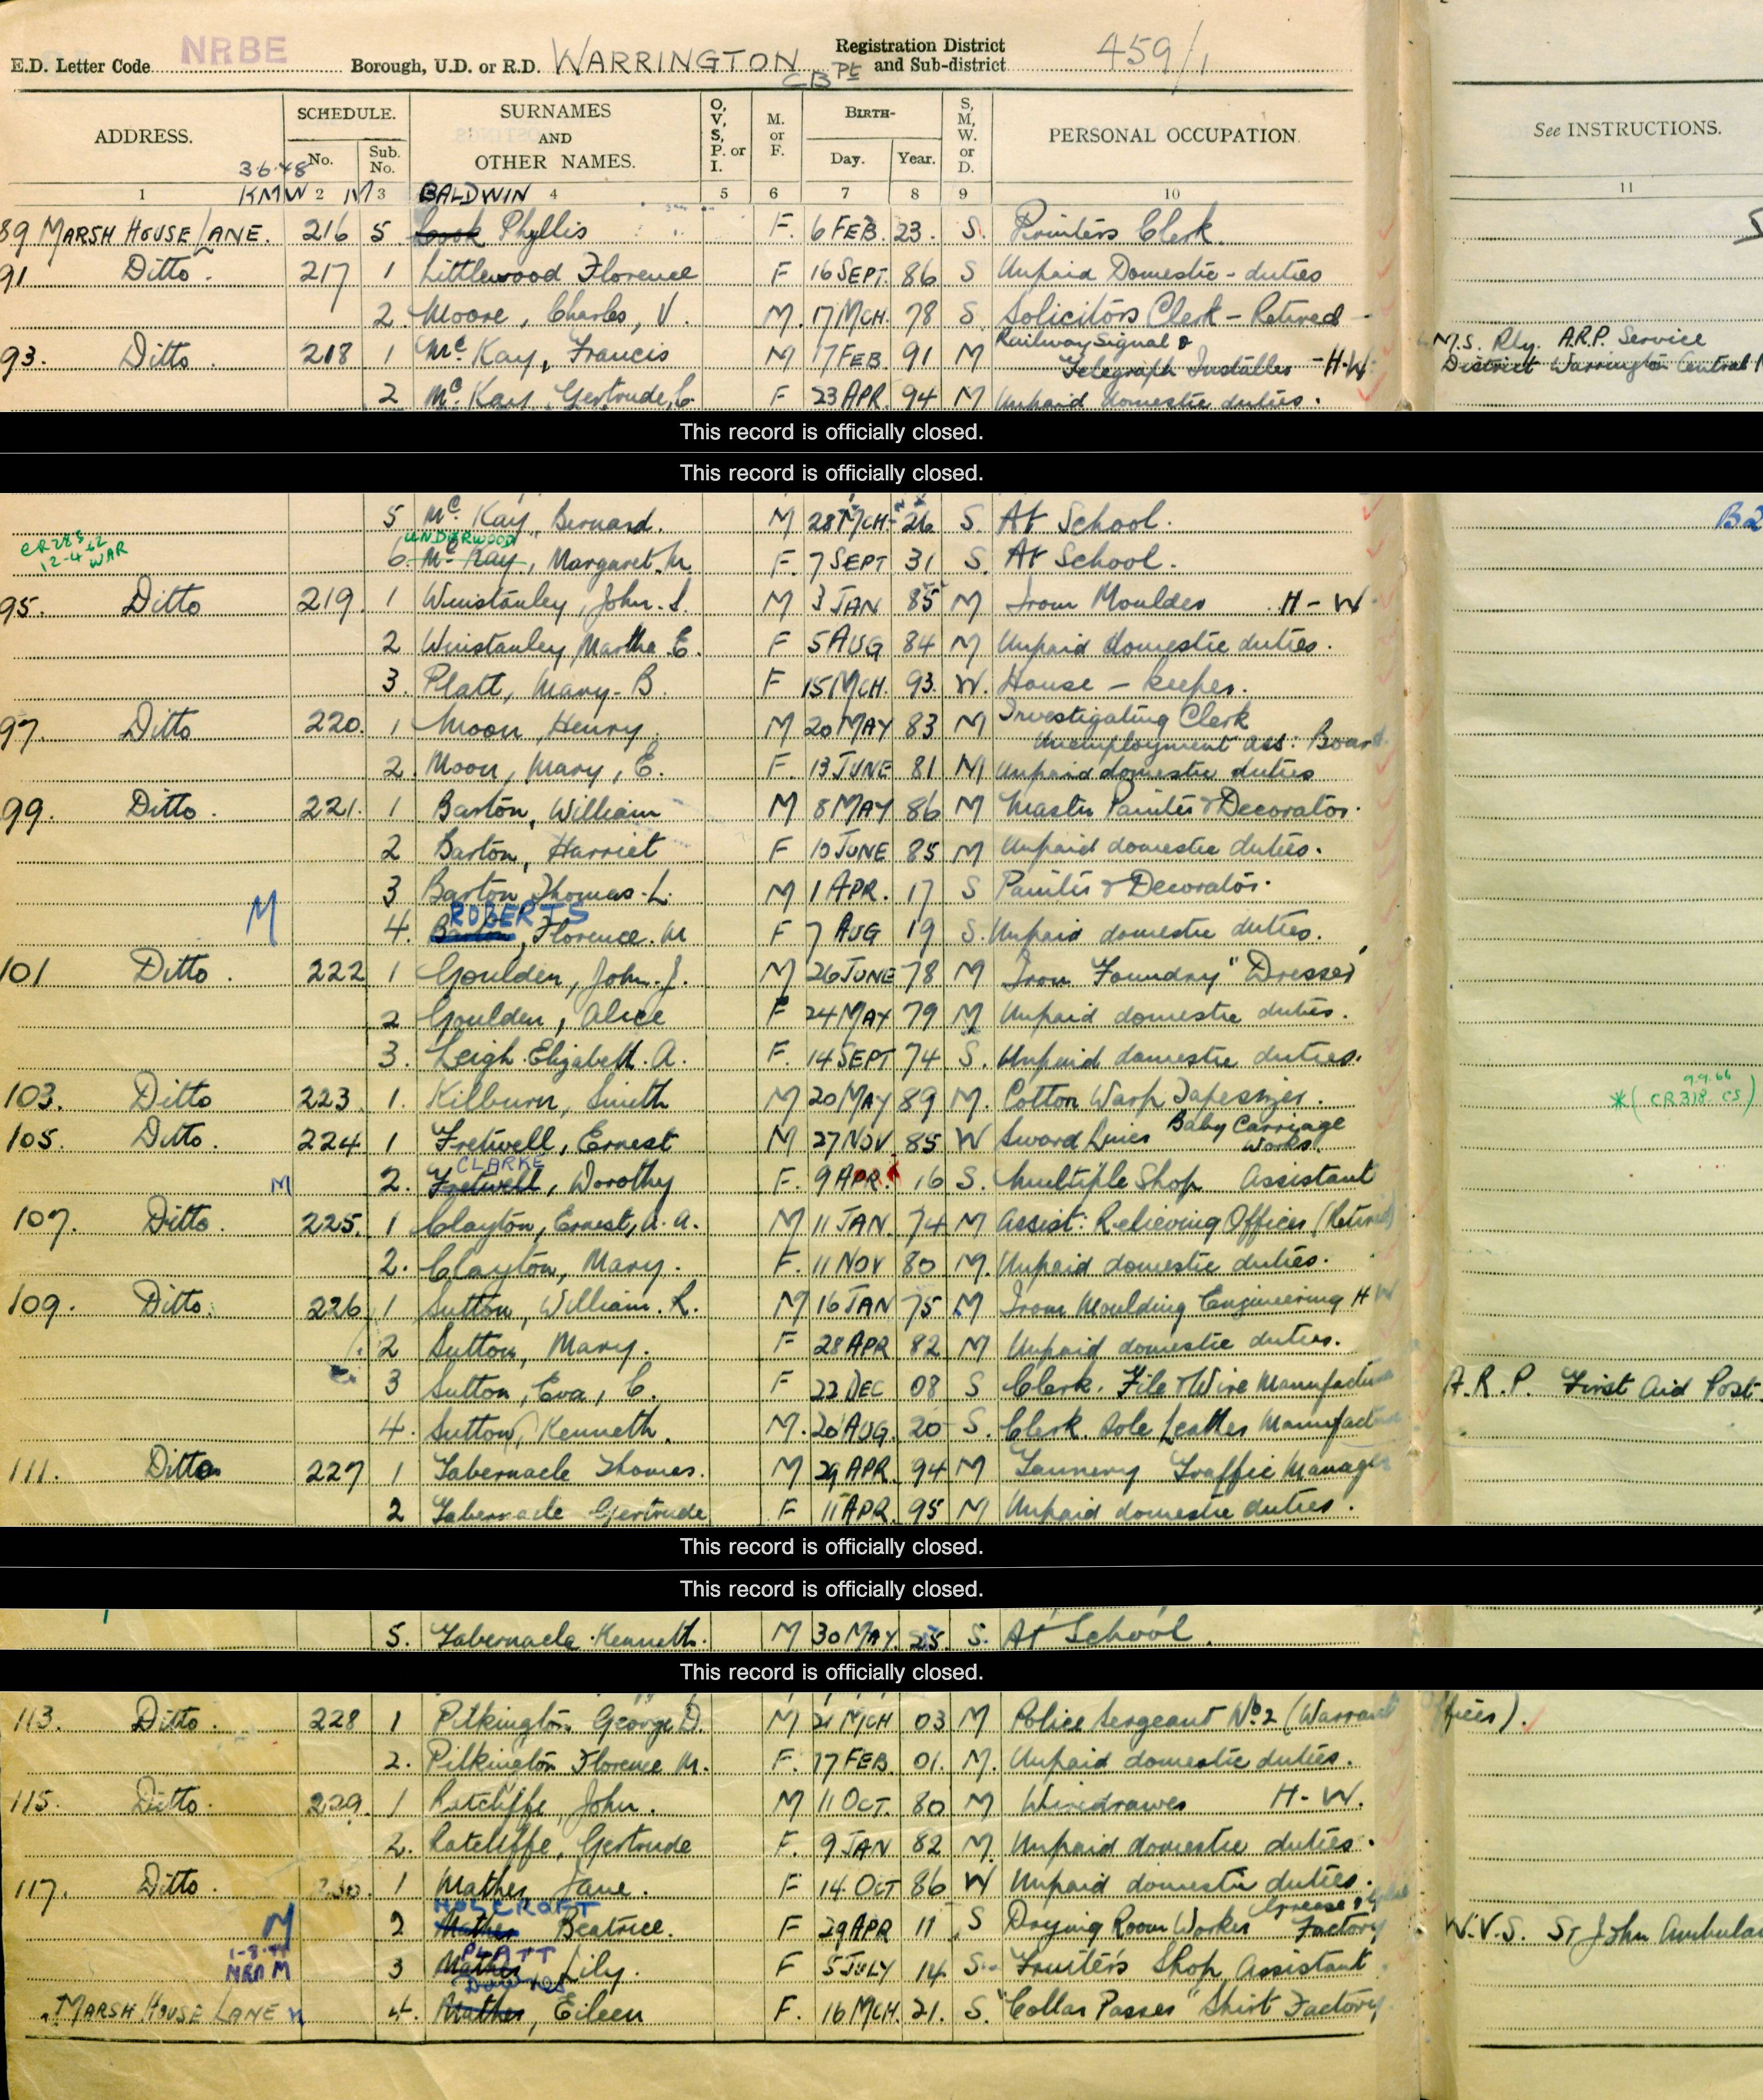 E.D. Letter Code NRBE Borough, U.D. or R.D. WARRINGTON CB Pt Registration District and Sub-district 459/1
ADDRESS. SCHEDULE. No. Sub. No. SURNAMES AND OTHER NAMES. O, V, S, P. or I. M. or F. BIRTH- Day. Year. S, M, W. or D. PERSONAL OCCUPATION See INSTRUCTIONS.
3.6.48
1 KMW 2 M 3 BALDWIN 4 5 6 7 8 9 10 11
89 MARSH HOUSE LANE. 216 5 Phyllis F. 6 FEB. 23. S. Printers Clerk.
91 Ditto. 217 1 Littlewood Florence F 16 SEPT. 86 S Unpaid Domestic - duties
2. Moore, Charles, V. M. 17 MCH. 78 S. Solicitors Clerk - Retired
93. Ditto 218 1 Mc Kay, Francis M 17 FEB 91 M Railway Signal & Telegraph Installer - H.W. M.S. Rly. A.R.P. Service District Warrington Central
2 Mc Kay, Gertrude, C. F 23 APR. 94 M Unpaid domestic duties.
This record is officially closed.
This record is officially closed.
5 Mc Kay, Bernard. M 28 MCH 26 S. At School.
CR 283 12-4-62 WAR UNDERWOOD
6 Mc Kay, Margaret. M. F. 7 SEPT 31 S. At School.
95. Ditto 219. 1 Winstanley, John. S. M 3 JAN 85 M Iron Moulder H - W
2 Winstanley, Martha E. F 5 AUG 84 M Unpaid domestic duties.
3. Platt, Mary - B. F 15 MCH. 93. W. House - keeper.
97. Ditto 220. 1 Moon, Henry M 20 MAY 83 M Investigating Clerk Unemployment Ass: Board
2. Moon, Mary, E. F. 13 JUNE 81 M Unpaid domestic duties
99. Ditto. 221. 1 Barton, William M 8 MAY 86 M Master Painter & Decorator.
2 Barton, Harriet F 10 JUNE 85 M Unpaid domestic duties.
3 Barton, Thomas. L. M 1 APR. 17 S Painter & Decorator.
M ROBERTS
4. Barton, Florence. M F 7 AUG 19 S. Unpaid domestic duties.
101 Ditto. 222 1 Goulden, John. J. M 26 JUNE 78 M Iron Foundry "Dresser"
2 Goulden, Alice F 24 MAY 79 M Unpaid domestic duties.
3. Leigh. Elizabeth. A. F. 14 SEPT 74 S. Unpaid domestic duties.
103. Ditto 223 1. Kilburn, Smith M 20 MAY 89 M. Cotton Warp Tapesizer. *(CR 318. CS) 9.9.66
105. Ditto. 224 1 Fretwell, Ernest M 27 NOV. 85 W Baby Carriage Works.
CLARKE
M 2. Fretwell, Dorothy F. 9 APR. 16 S. Multiple Shop Assistant
107. Ditto. 225. 1 Clayton, Ernest, A. A. M 11 JAN 74 M Assist: Relieving Officer (Retired)
2. Clayton, Mary. F. 11 NOV 80 M. Unpaid domestic duties.
109. Ditto. 226 1 Sutton, William. R. M 16 JAN 75 M Iron Moulding Engineering H W
2 Sutton, Mary. F 28 APR 82 M Unpaid domestic duties.
3 Sutton, Eva, C. F 22 DEC 08 S Clerk. File & Wire Manufacture A.R.P. First Aid Post.
4. Sutton, Kenneth. M. 20 AUG. 20 S. Clerk. Sole Leather Manufact
111. Ditto 227 1 Tabernacle Thomas. M 29 APR. 94 M Tannery Traffic Manager
2 Tabernacle Gertrude F 11 APR. 95 M Unpaid domestic duties.
This record is officially closed.
This record is officially closed.
5. Tabernacle Kenneth. M 30 MAY. 25 S. At School.
This record is officially closed.
113. Ditto. 228 1 Pilkington George D. M 21 MCH 03 M Police Sergeant No. 2 (Warrant Officer).
2. Pilkington Florence M. F. 17 FEB. 01. M. Unpaid domestic duties.
115. Ditto. 229. 1 Ratcliffe, John. M 11 OCT. 80 M Wiredrawer H - W.
2. Ratcliffe, Gertrude F. 9 JAN 82 M. Unpaid domestic duties.
117. Ditto. 230. 1 Mather, Jane. F 14 OCT 86 W Unpaid domestic duties.
M HOLCROFT
2 Mather Beatrice. F 29 APR 11 S Drying Room Worker Factory W.V.S. St John Ambulan
PLATT
M 3 Mather, Lily. F 5 JULY 14 S. Fruiterers Shop Assistant
MARSH HOUSE LANE 4. Mather, Eileen F. 16 MCH. 21. S. "Collar Passer" Shirt Factory.